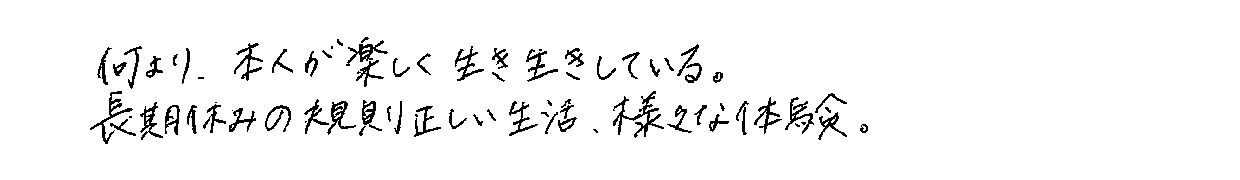 何より、本人が楽しく生き生きしている。
長期休みの規則正しい生活、様々な体験。